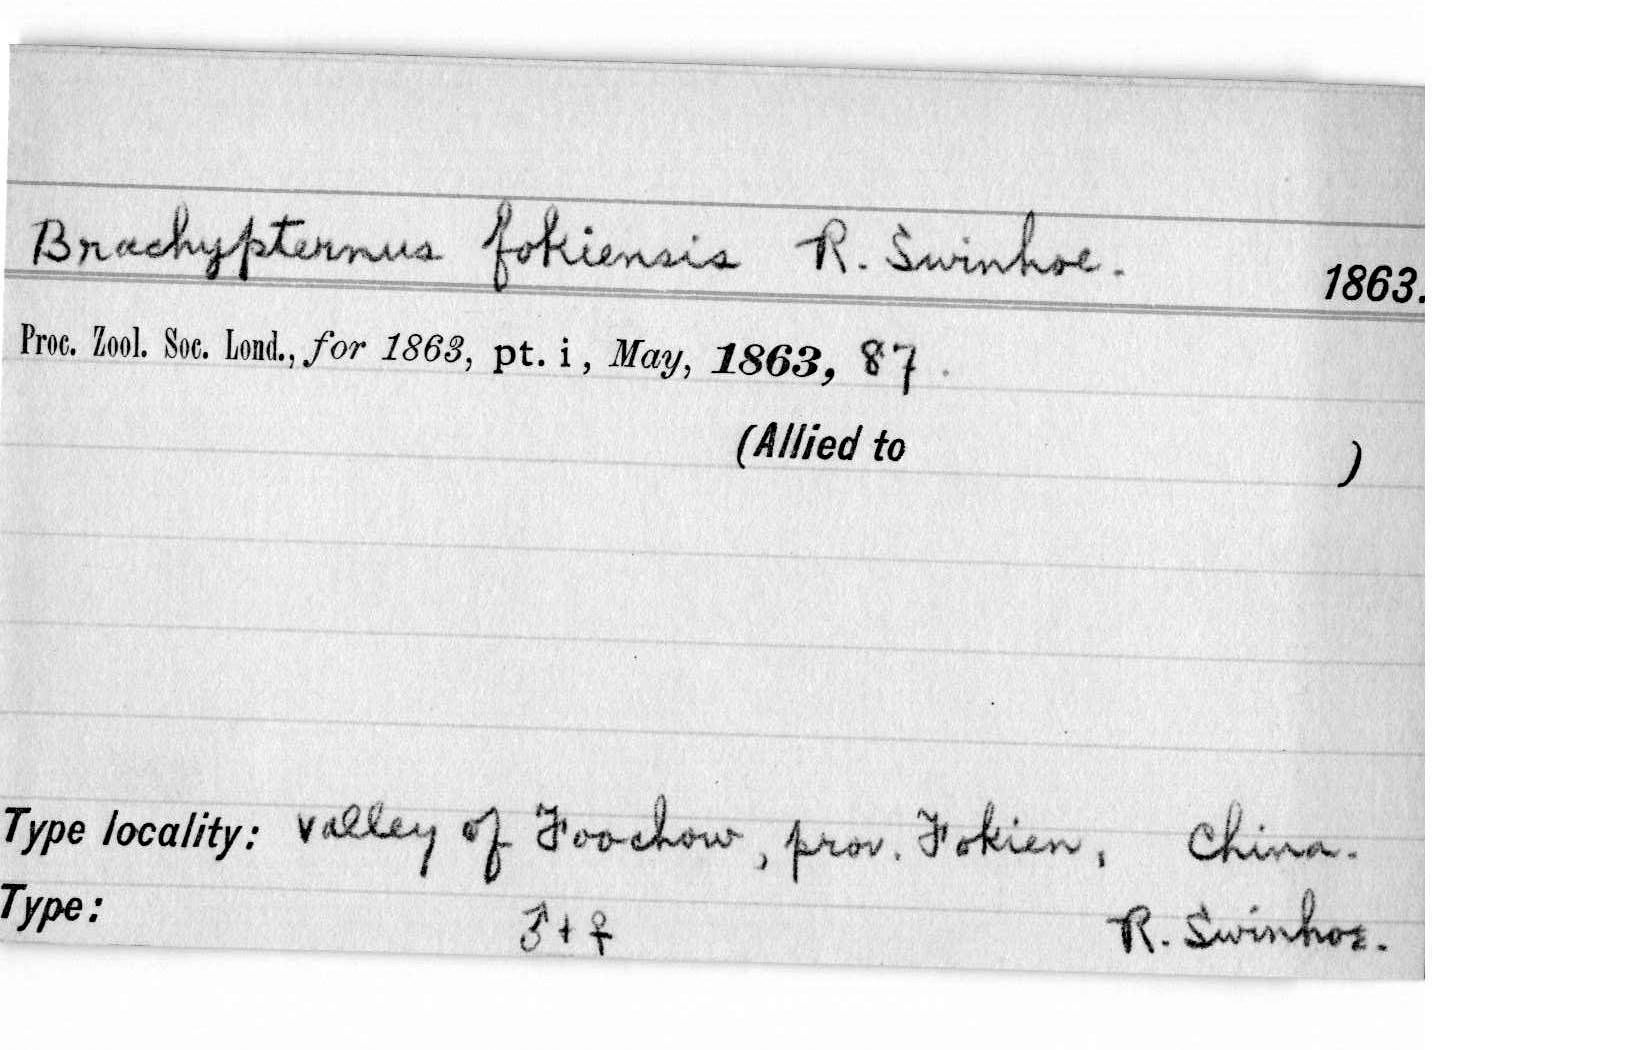 Brachypternus fokiensis R. Swinhoe. 1863.
Proc. Zool. Soc. Lond., for 1863, pt. i, May, 1863, 87.
(Allied to )
Type locality: valley of Foochow, prov. Fokien, China.
Type: ♂ + ♀ R. Swinhoe.